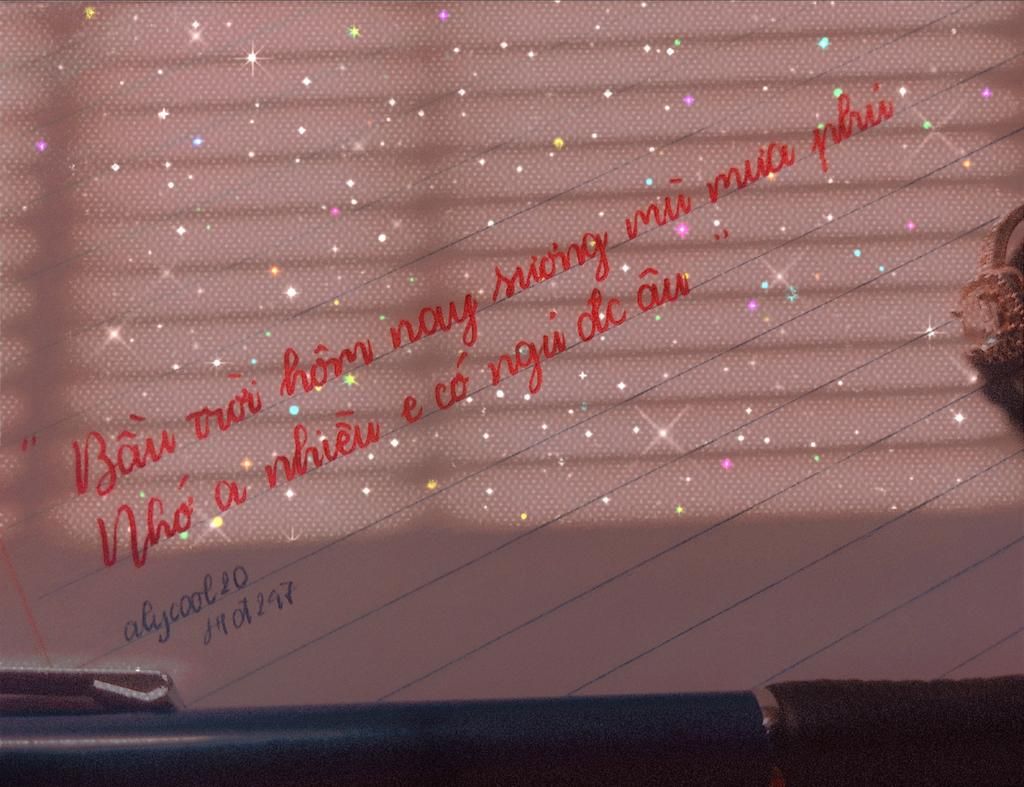 "Bầu trời hôm nay sương mù mưa phú
Nhớ a nhiều e có ngủ đc âu"
alycool20